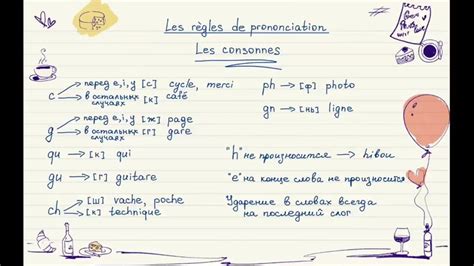 Les règles de prononciation
Les consonnes
c → перед e, i, y [с] cycle, merci
→ в остальных случаях [к] café
g → перед e, i, y [ж] page
→ в остальных случаях [г] gare
qu → [к] qui
gu → [г] guitare
ch → [ш] vache, poche
→ [к] technique
ph → [ф] photo
gn → [нь] ligne
"h" не произносится → hibou
"e" на конце слова не произносится
Ударение в словах всегда
на последний слог